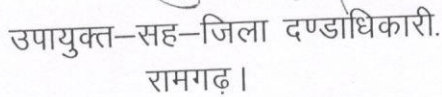 उपायुक्त–सह–जिला दण्डाधिकारी.
रामगढ़।